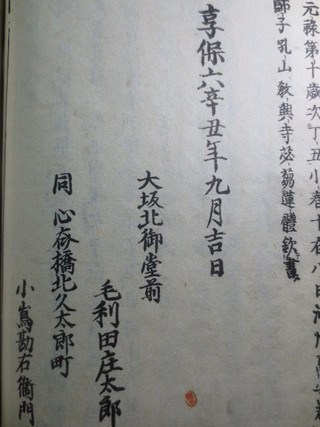 元祿第十歲次丁丑小春十有八日
師子乳山教興寺苾蒭蓮體欽書
享保六辛丑年九月吉日
大坂北御堂前
毛利田庄太郎
同心斎橋北久太郎町
小嶌勘右衞門